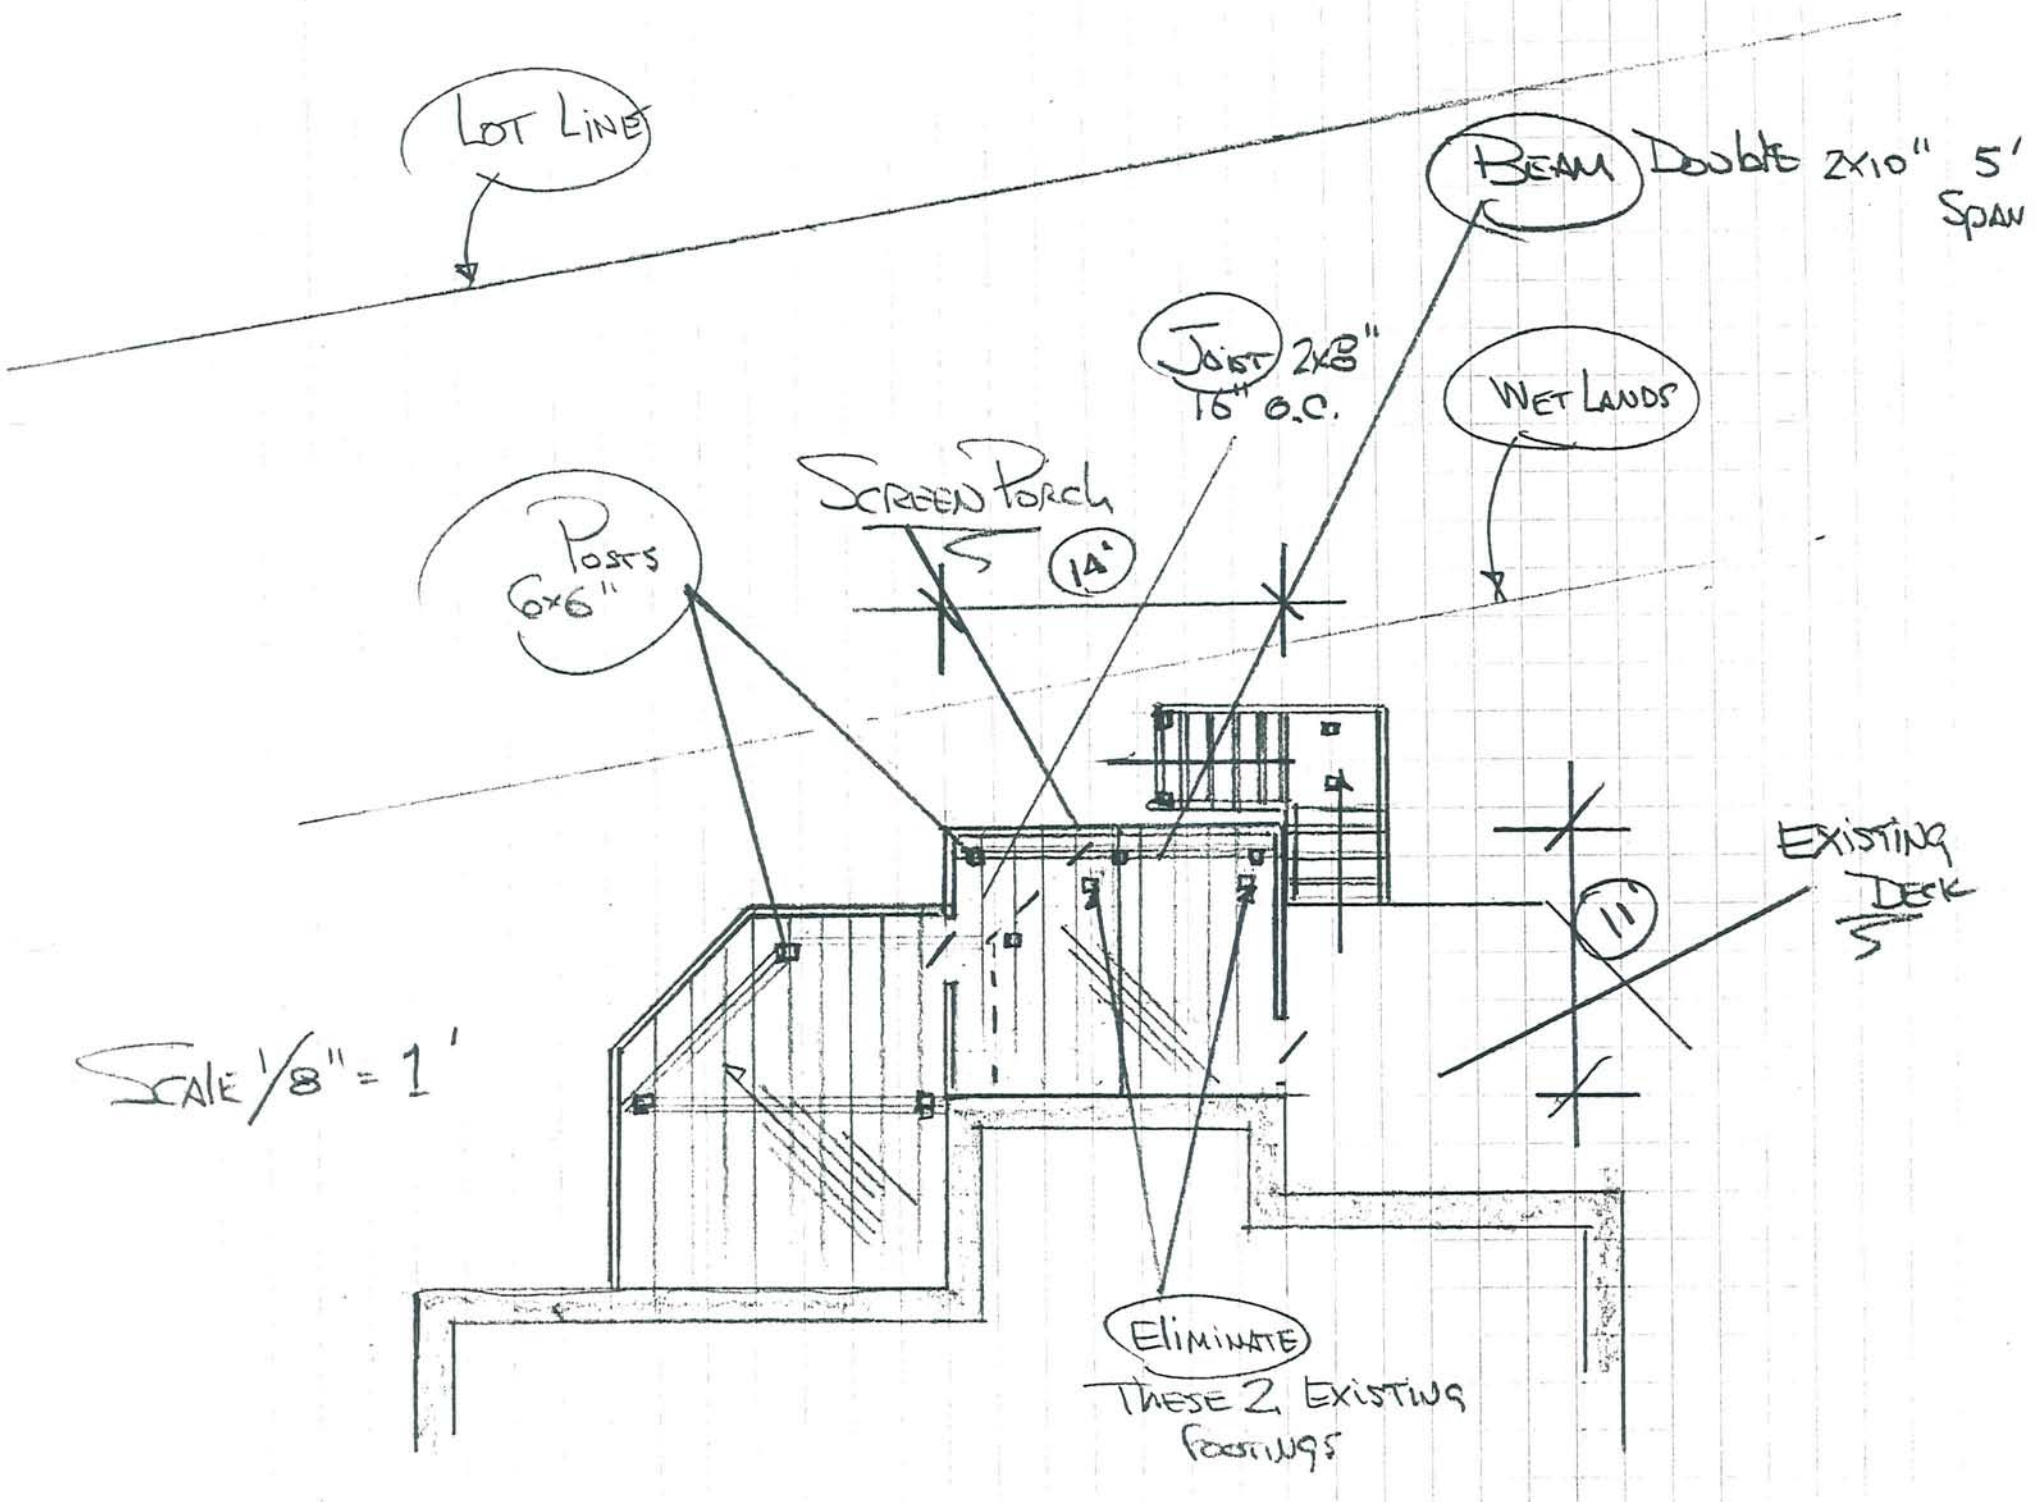 LOT LINE
BEAM Double 2x10" 5'
SPAN
JOIST 2x8"
16" O.C.
WET LANDS
SCREEN PORCH
14'
POSTS
6x6"
EXISTING
DECK
11'
SCALE 1/8" = 1'
ELIMINATE
THESE 2 EXISTING
FOOTINGS